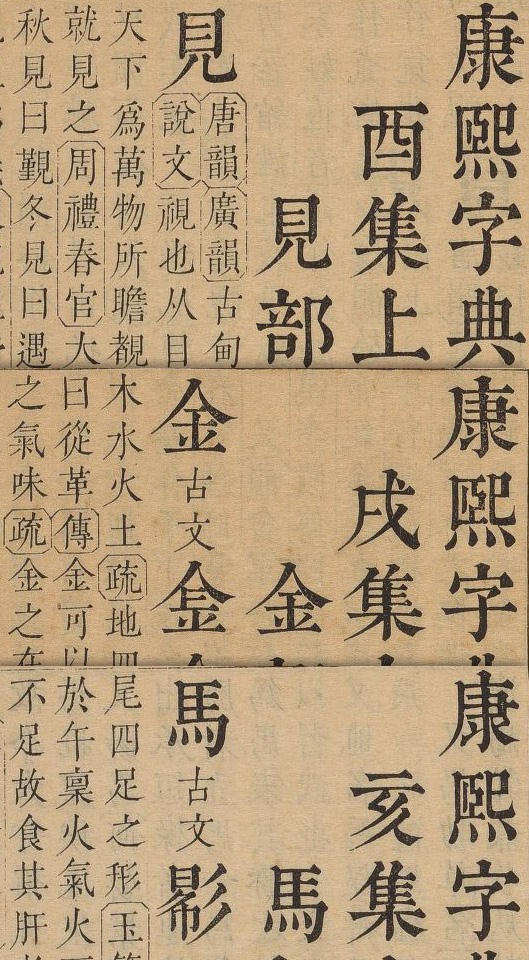 康熙字典
酉集上
見部
見
唐韻廣韻古甸
說文視也从目
天下爲萬物所瞻覩
就見之周禮春官大
秋見曰覲冬見曰遇
康熙字
戌集
金
金古文
木水火土疏地四
曰從革傳金可以
之氣味疏金之在
康熙字
亥集
馬
馬古文
尾四足之形玉
於午稟火氣火
不足故食其肝